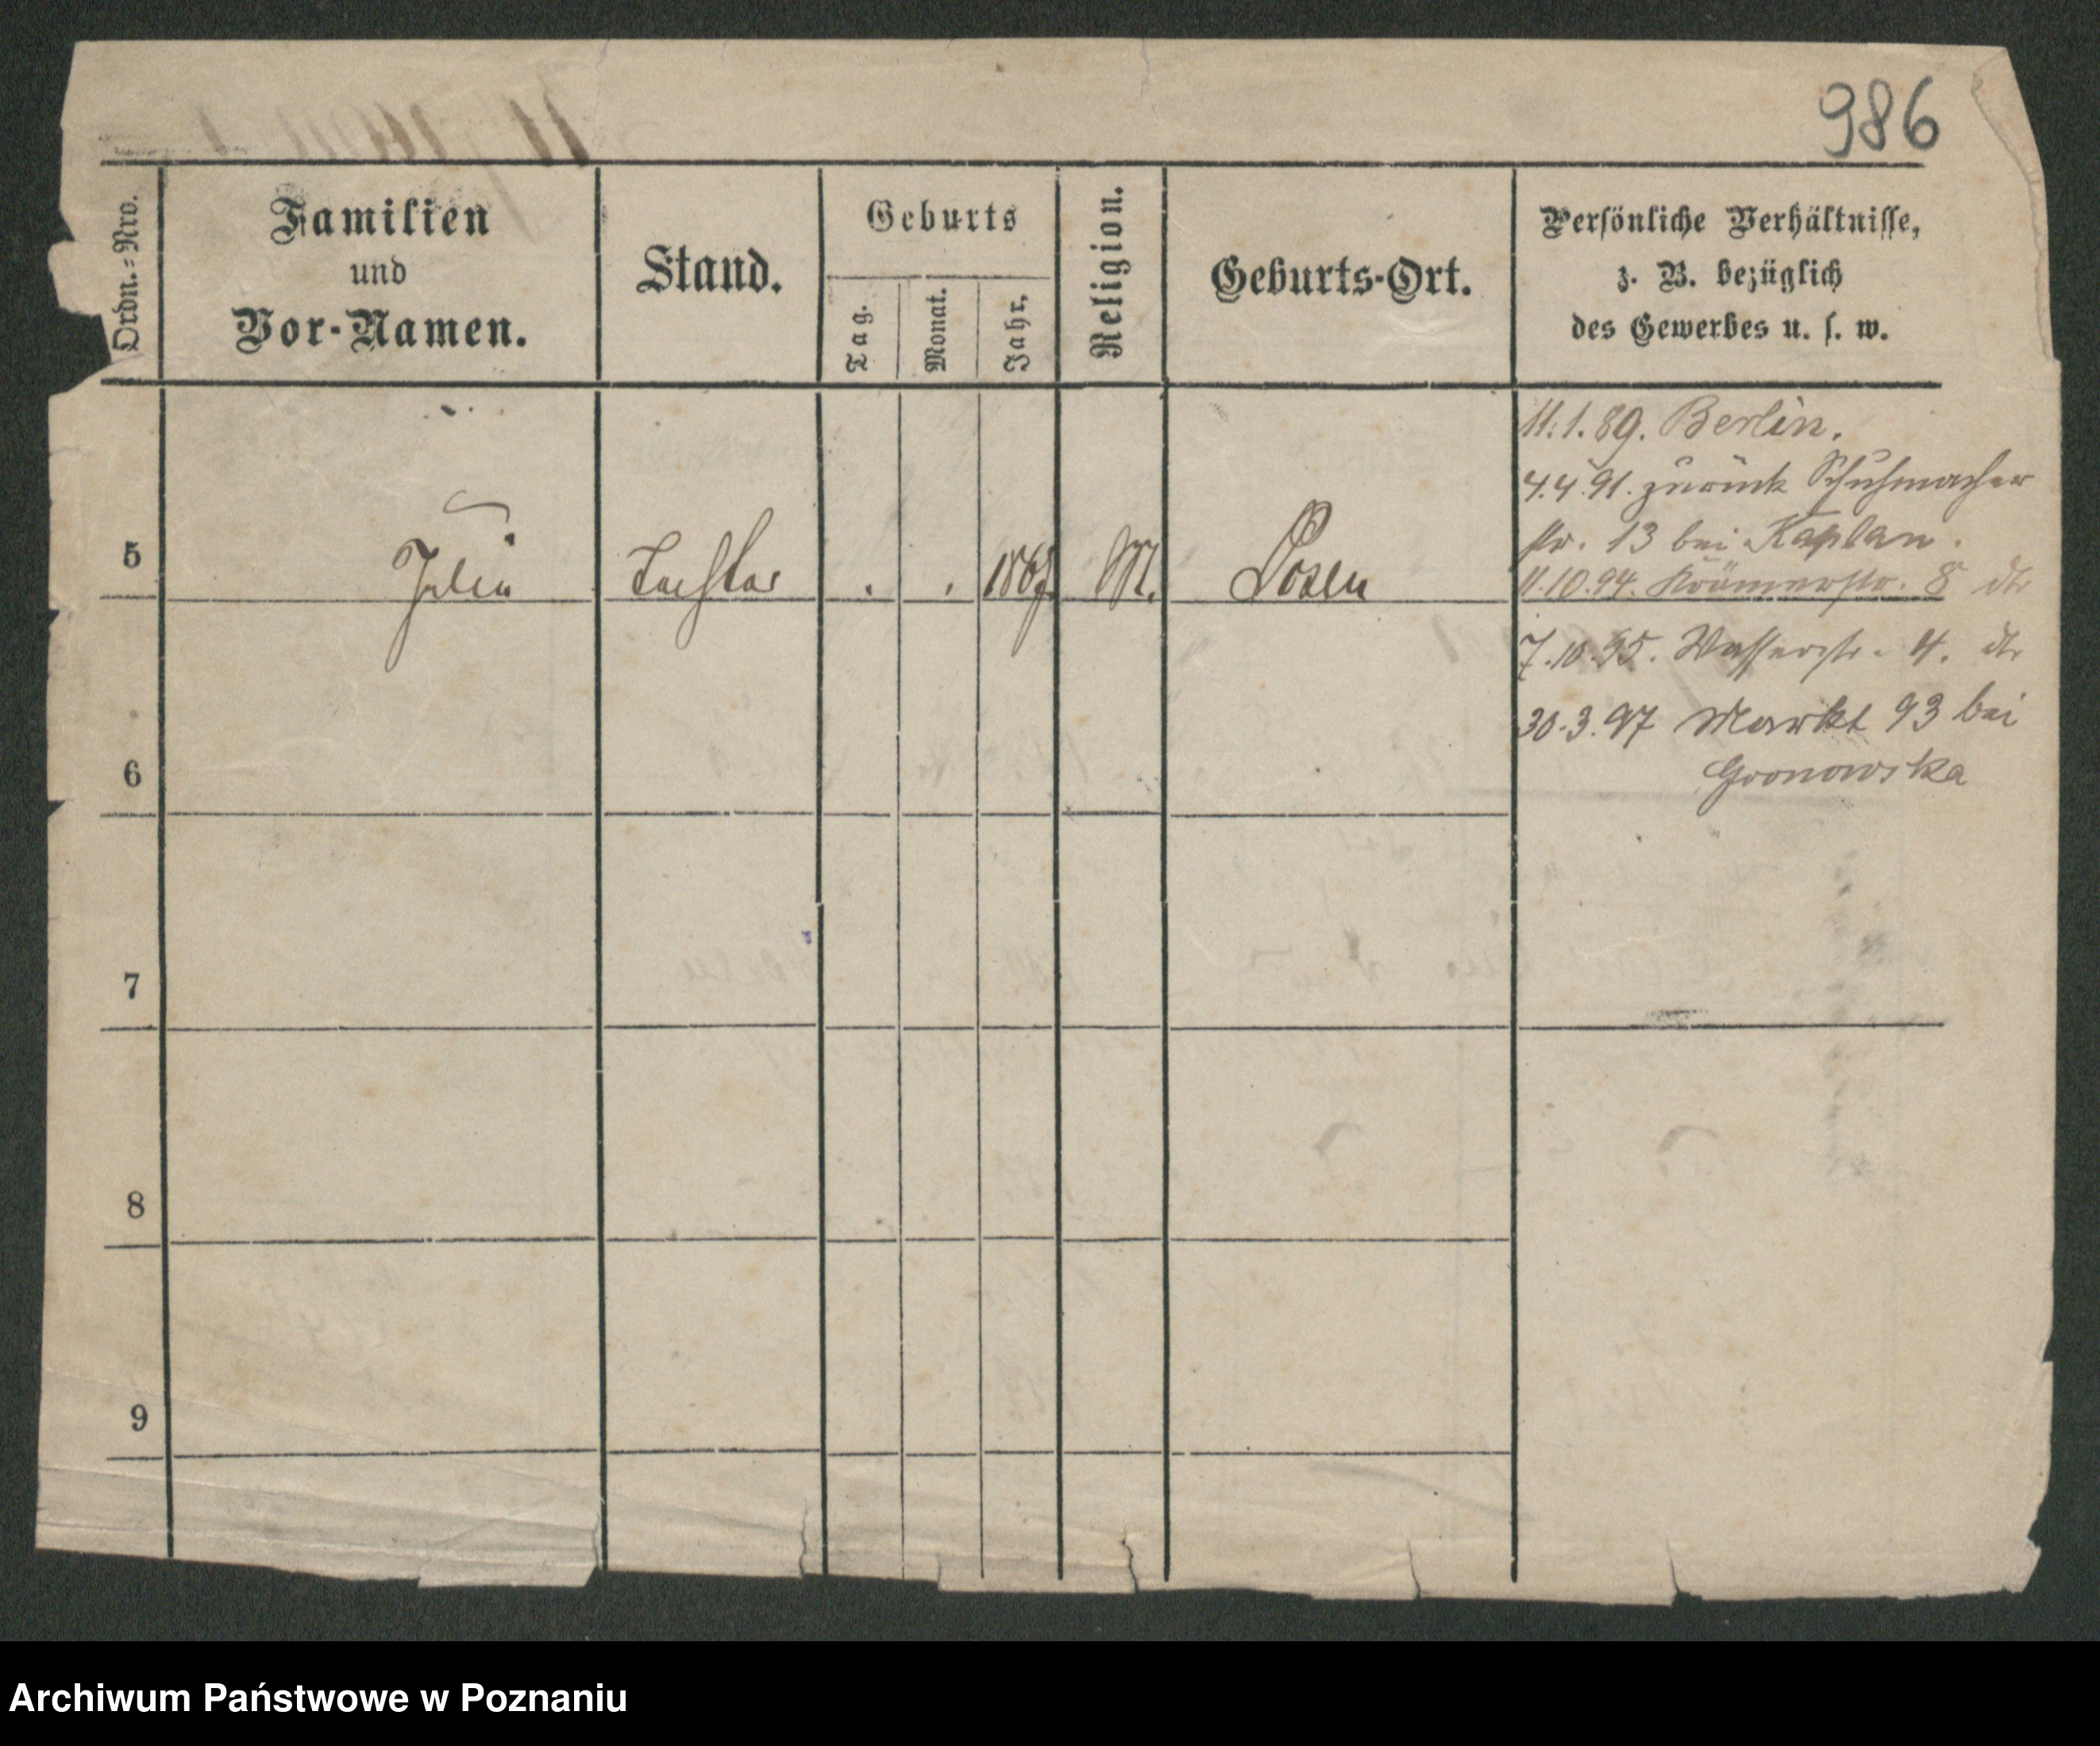 986
Ordn.=Nro.
Familien
und
Vor-Namen.
Stand.
Geburts
Tag.
Monat.
Jahr,
Religion.
Geburts-Ort.
Persönliche Verhältnisse,
z. B. bezüglich
des Gewerbes u. s. w.
11.1.89. Berlin.
4.4.91. zurück Schuhmacher
str. 13 bei Kaplan.
5 Tochter . . M. Posen
11.10.94. Krämerstr. 8 dto
7.10.95. Wasserstr. 4. dto
30.3.97 Markt 93 bei
Gronowska
6
7
8
9
Archiwum Państwowe w Poznaniu